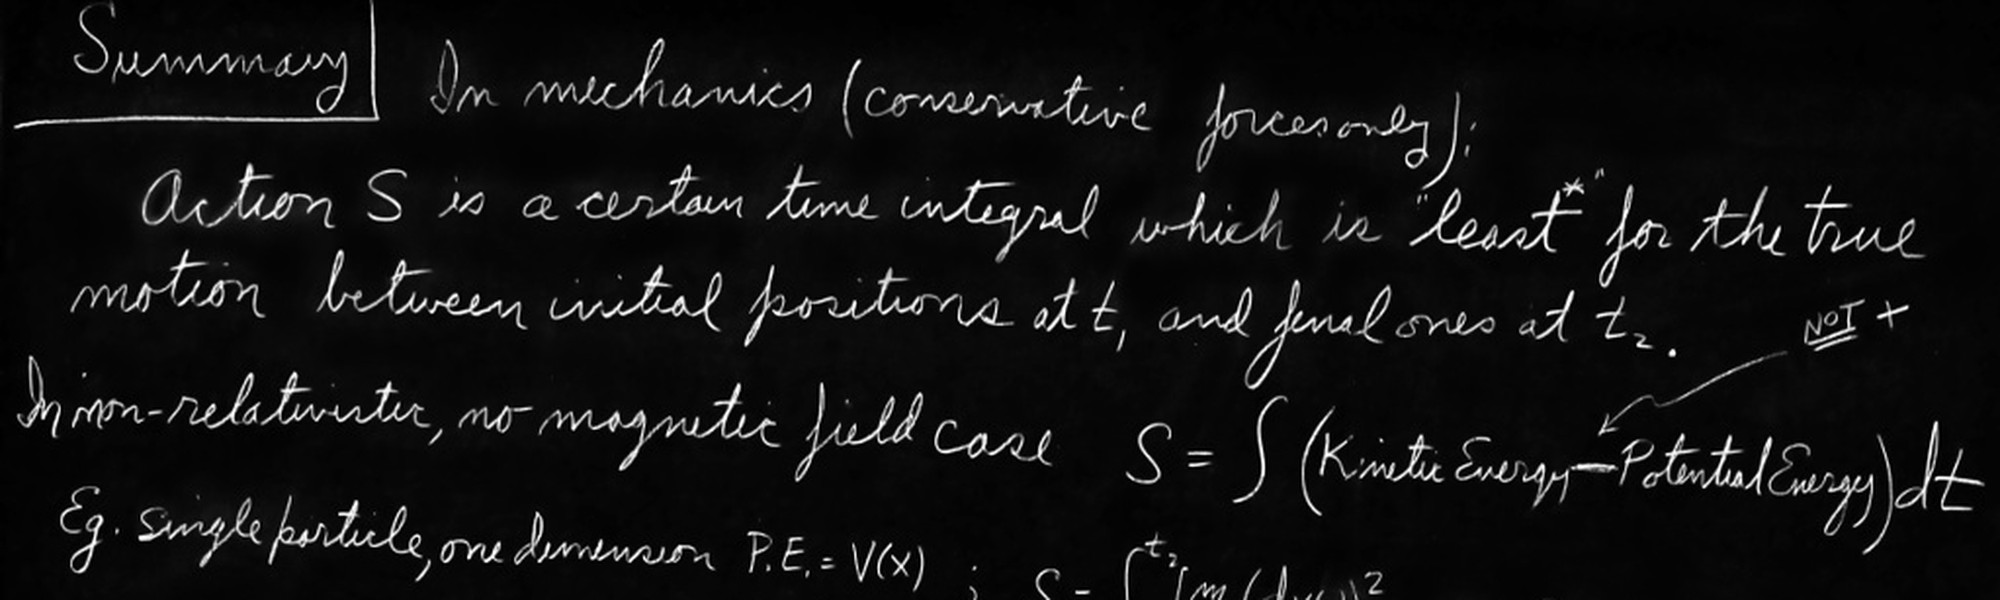 Summary
In mechanics (conservative forces only):
Action S is a certain time integral which is "least*" for the true
motion between initial positions at t₁ and final ones at t₂.
NOT +
In non-relativistic, no magnetic field case S = ∫ (Kinetic Energy − Potential Energy) dt
Eg. single particle, one dimension P.E. = V(x) ; S = ∫ t₂